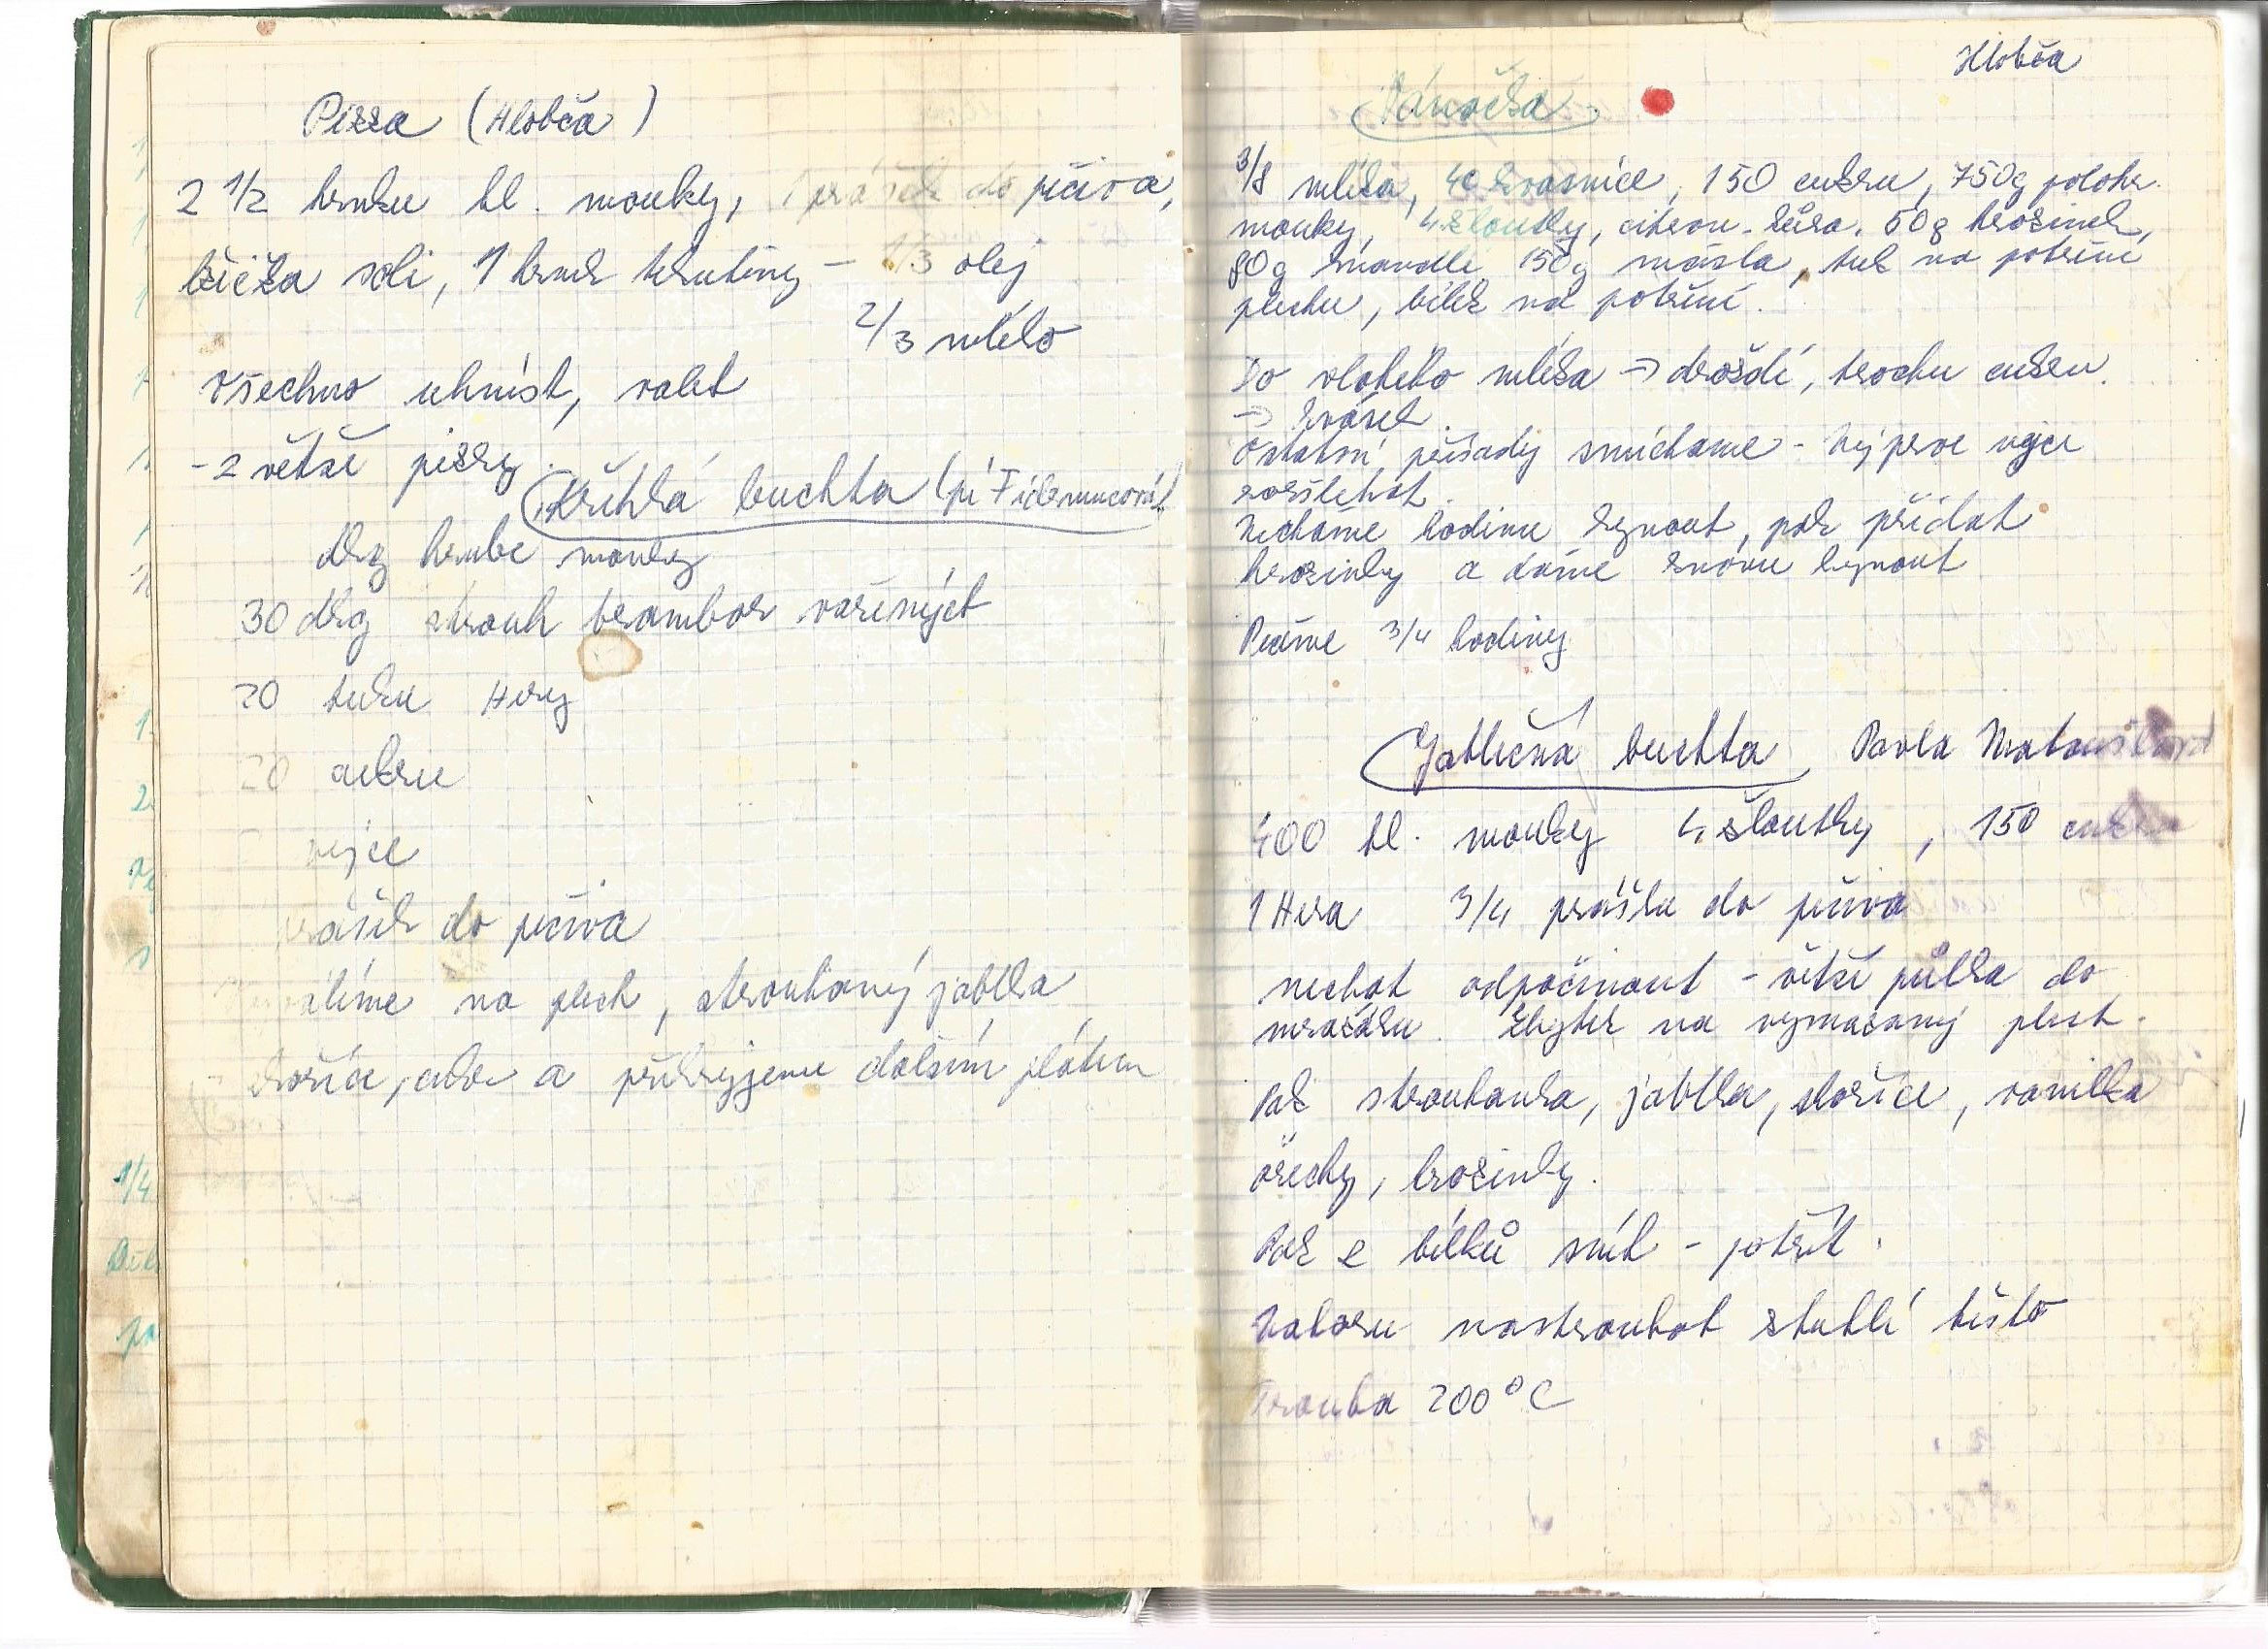 Pizza (Hlobča)
2 1/2 hrnku hl. mouky, 1 prášek do pečiva,
lžička soli, 1 hrnek tekutiny – 1/3 olej
2/3 mléko
Všechno uhníst, válet
- 2 větší pizzy.
Křehká buchta (pí
dkg hrubé mouky
30 dkg strouh brambor vařených
20 tuku Hery
20 cukru
vejce
prášek do pečiva
válíme na plech, strouhaný jablka
skořice, cukr a přikryjeme dalším plátem
Hlobča
Vánočka
3/8 mléka, kvasnice, 150 cukru, 750g polohr.
mouky, 4 žloutky, citron. kůra. 50g hrozinek,
80g mandlí, 150g másla, tuk na potření
plechu, bílek na potření.
Do vlahého mléka → droždí, trochu cukru.
→ kvásek.
Ostatní přísady smícháme - nejprve vejce
rozšlehat.
Necháme hodinu kynout, pak přidat
hrozinky a dáme znovu kynout
Pečeme 3/4 hodiny
Jablečná buchta Pavla
400 hl. mouky 4 žloutky, 150 cukru
1 Hera 3/4 prášku do pečiva
nechat odpočinout - větší půlka do
mrazáku. Zbytek na vymazaný plech.
Pak strouhanka, jablka, skořice, vanilka
ořechy, hrozinky.
Pak z bílků sníh - potřít.
Nahoru nastrouhat ztuhlé těsto
Trouba 200°C